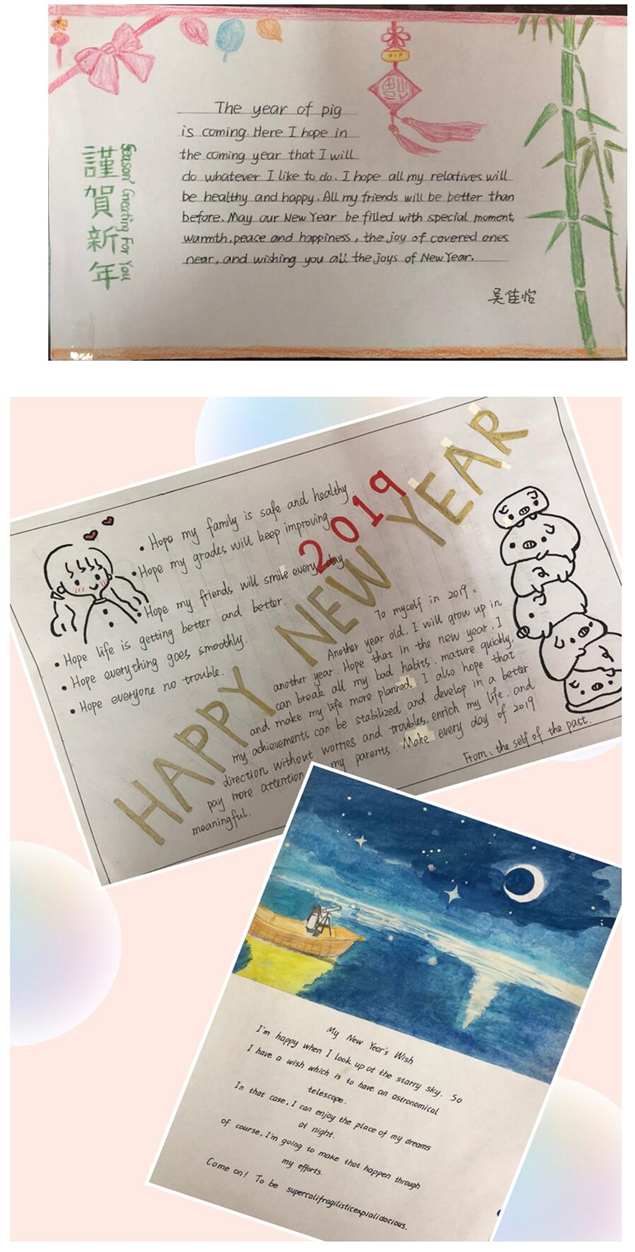 The year of pig
is coming. Here I hope in
the coming year that I will
do whatever I like to do. I hope all my relatives will
be healthy and happy. All my friends will be better than
before. May our New Year be filled with special moment,
warmth, peace and happiness, the joy of covered ones
near, and wishing you all the joys of New Year.
吴佳怡
謹賀新年
Season' Greating For You
HAPPY NEW YEAR
2019
• Hope my family is safe and healthy
• Hope my grades will keep improving
• Hope my friends will smile every day
• Hope life is getting better and better.
• Hope everything goes smoothly.
• Hope everyone no trouble.
To myself in 2019:
Another year old. I will grow up in
another year. Hope that in the new year, I
can break all my bad habits, mature quickly,
and make my life more planned. I also hope that
my achievements can be stabilized and develop in a better
direction without worries and troubles, enrich my life, and
pay more attention my parents. Make every day of 2019
meaningful.
From: the self of the past.
My New Year's Wish
I'm happy when I look up at the starry sky. So
I have a wish which is to have an astronomical
telescope.
In that case, I can enjoy the place of my dreams
at night.
of course, I'm going to make that happen through
my efforts.
Come on! To be supercalifragilisticexpialidocious.